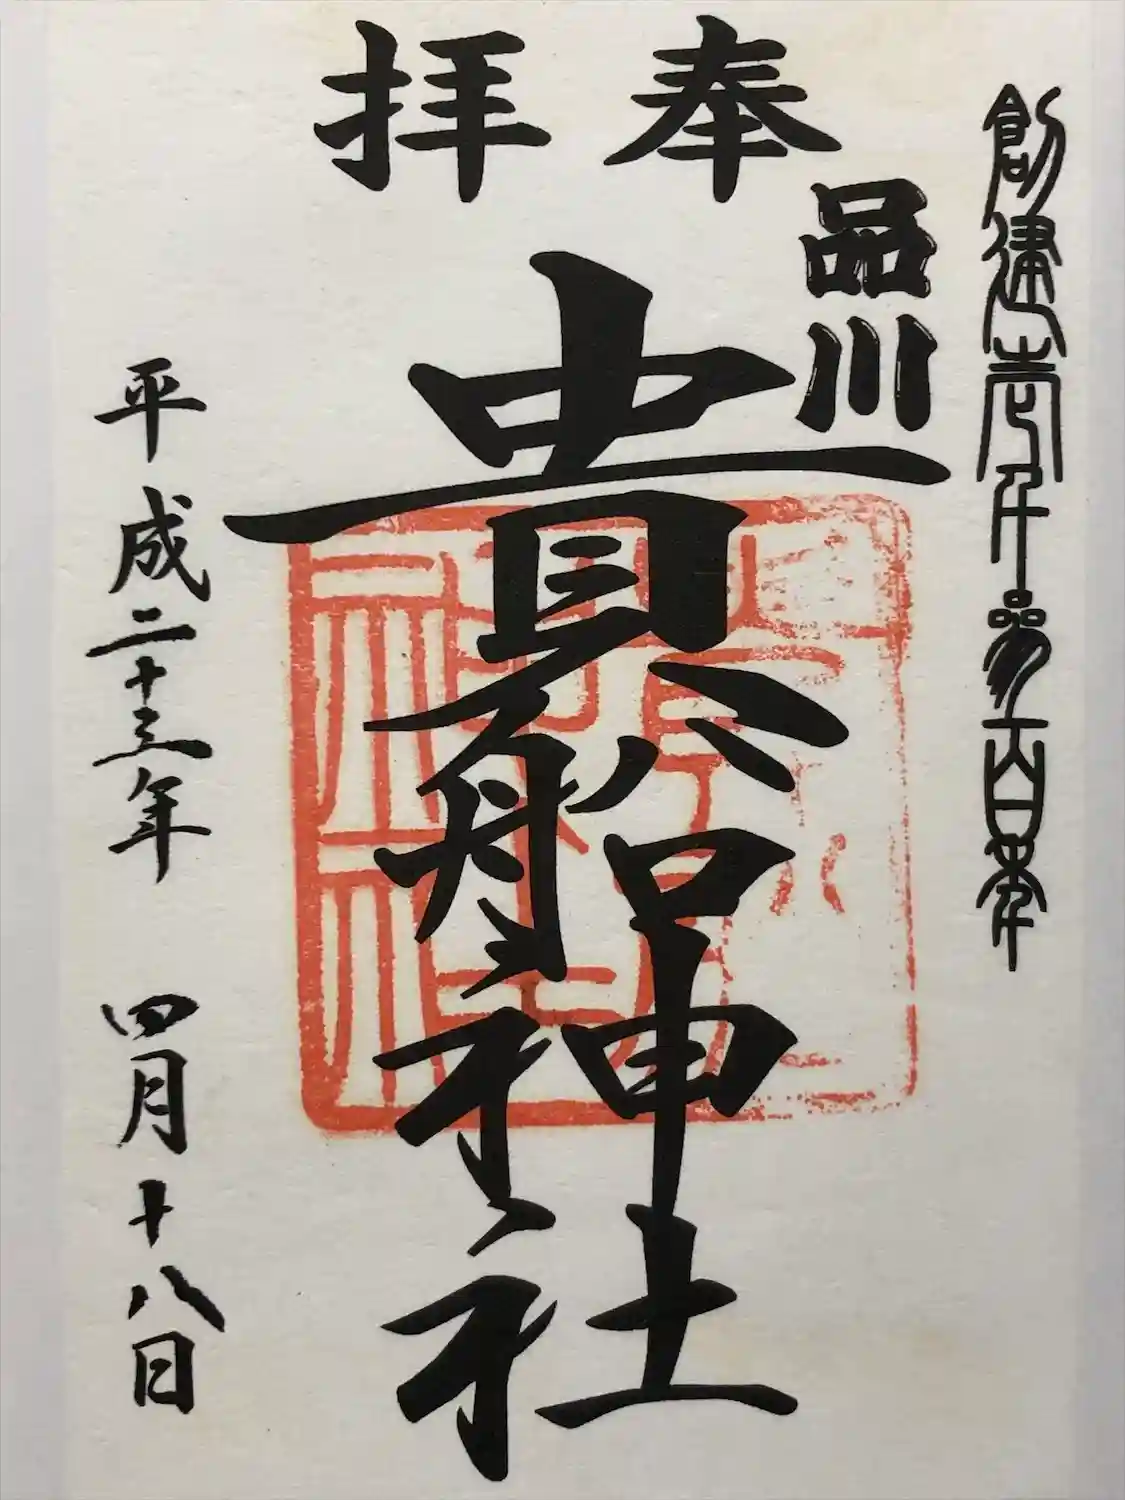 創建壱千參百年
奉拝
品川
貴船神社
平成二十三年 四月十八日